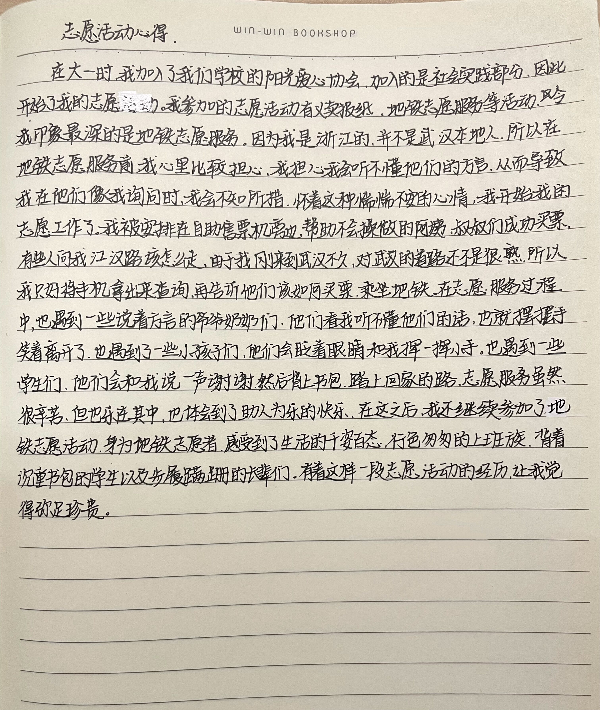 WIN-WIN BOOKSHOP
志愿活动心得.
在大一时,我加入了我们学校的阳光爱心协会,加入的是社会实践部分,因此
开始了我的志愿活动。我参加的志愿活动有义卖报纸、地铁志愿服务等活动,只令
我印象最深的是地铁志愿服务。因为我是浙江的,并不是武汉本地人,所以在
地铁志愿服务前,我心里比较担心,我担心我会听不懂他们的方言,从而导致
我在他们像我询问时,我会不知所措,怀着这种惴惴不安的心情,我开始我的
志愿工作了。我被安排在自助售票机旁边,帮助不会操做的阿姨、叔叔们成功买票,
有些人问我江汉路该怎么走,由于我刚来到武汉不久,对武汉的道路还不是很熟,所以
我只好将手机拿出来查询,再告诉他们该如何买票、乘坐地铁。在志愿服务过程
中,也遇到一些说着方言的爷爷奶奶们,他们看我听不懂他们的话,也就摆摆手
笑着离开了,也遇到了一些小孩子们,他们会眨着眼睛和我挥一挥小手。也遇到一些
学生们,他们会和我说一声谢谢,然后背上书包,踏上回家的路,志愿服务虽然
很辛苦,但也乐在其中,也体会到了助人为乐的快乐、在这之后,我还继续参加了地
铁志愿活动,身为地铁志愿者,感受到了生活的千姿百态,行色匆匆的上班族,背着
沉重书包的学生以及步履蹒跚的长辈们。有着这样一段志愿活动的经历,让我觉
得弥足珍贵。